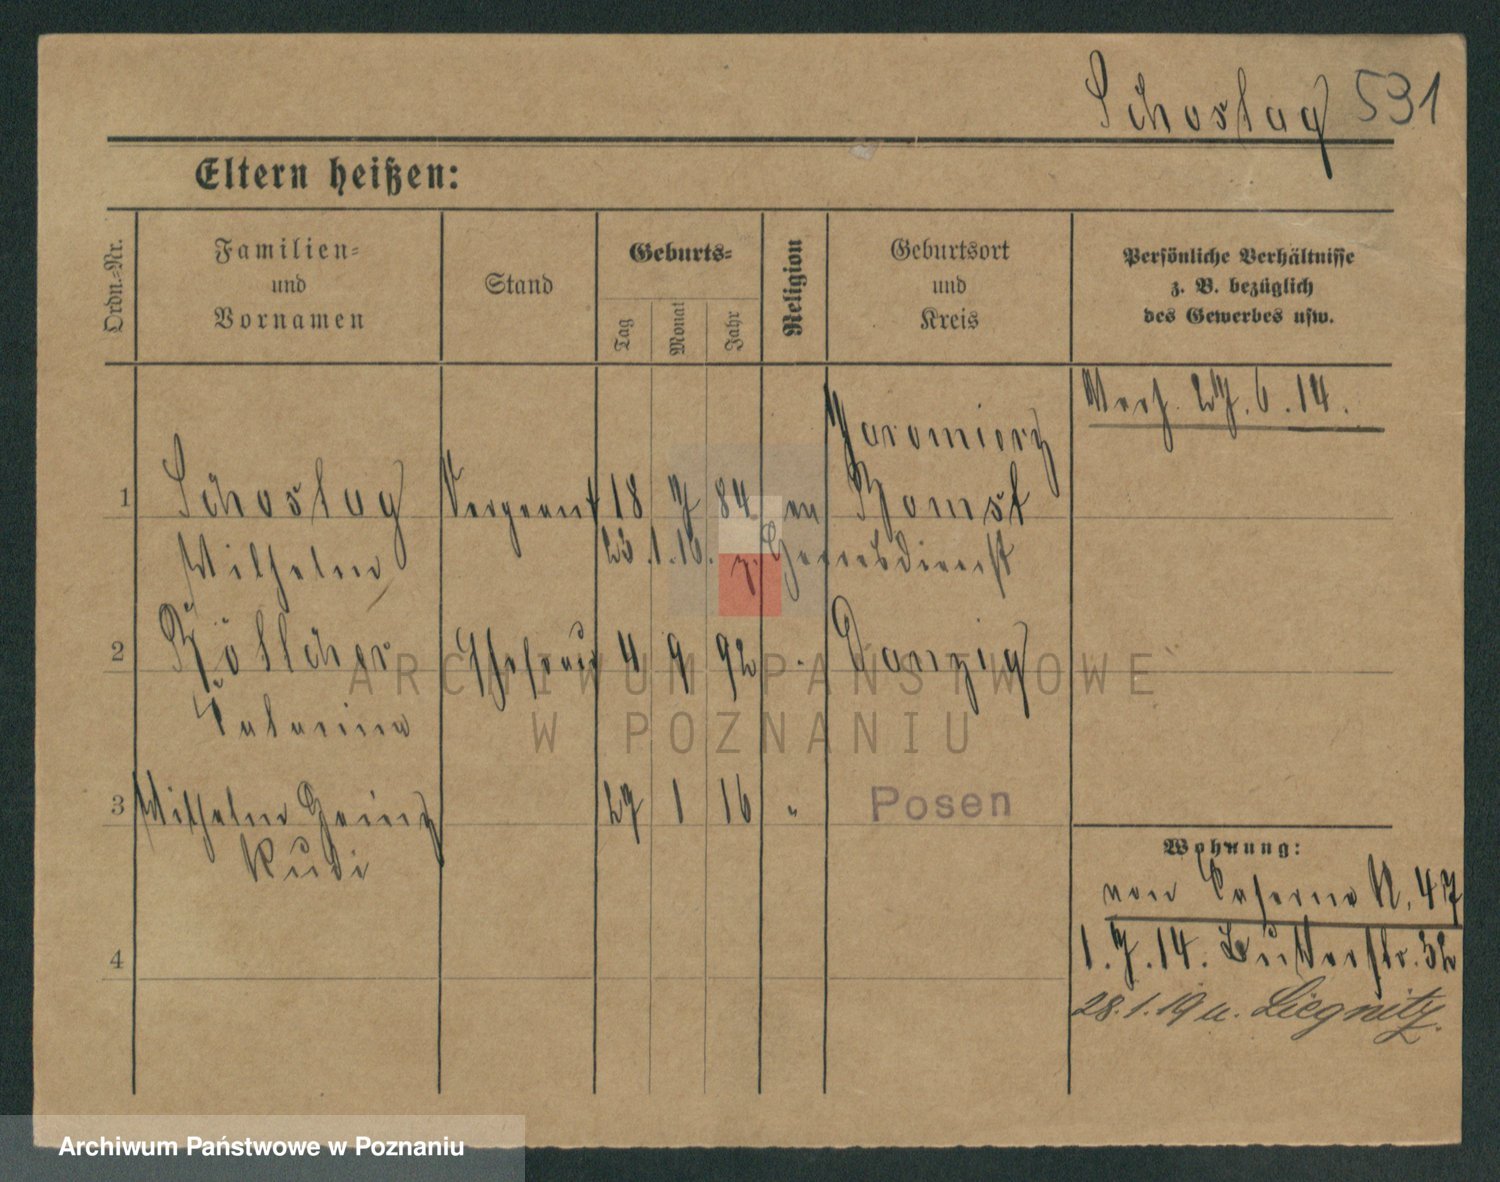 Schostag 531
Eltern heißen:
Ordn.-Nr.
Familien-
und
Vornamen
Stand
Geburts-
Tag
Monat
Jahr
Religion
Geburtsort
und
Kreis
Persönliche Verhältnisse
z. B. bezüglich
des Gewerbes usw.
Verh. 27.6.14.
Jaromierz
1 Schostag Sergeant 18 7 84 ev Bomst
Wilhelm 23.1.16. z. Heeresdienst
2 Böttcher Ehefrau 4 9 92 " Danzig
Katarina
3 Wilhelm Heinz 27 1 16 " Posen
Rudi
Wohnung:
von Caserne R. 47
4 1.7.14. Luther str. 32
28.1.19 u. Liegnitz.
ARCHIWUM PAŃSTWOWE
W POZNANIU
Archiwum Państwowe w Poznaniu